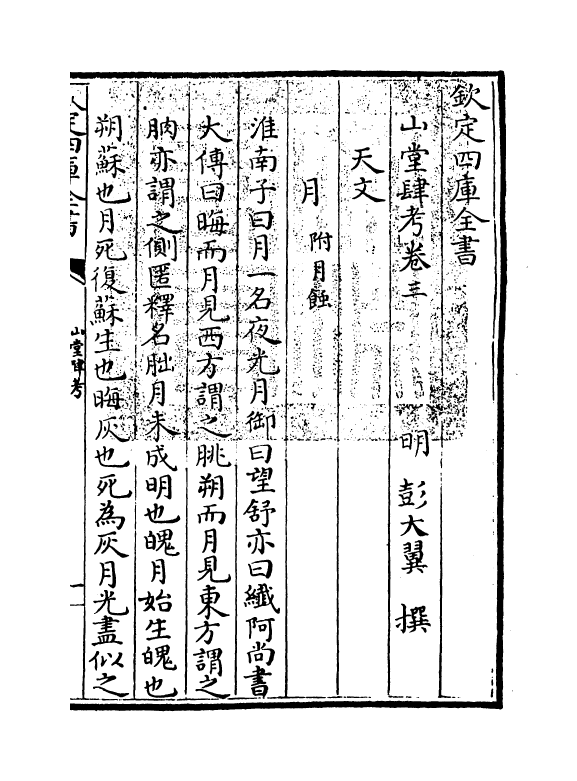 欽定四庫全書
山堂肆考卷三
明 彭大翼 撰
天文
月 附月蝕
淮南子曰月一名夜光月御曰望舒亦曰纎阿尚書
大傳曰晦而月見西方謂之朓朔而月見東方謂之
朒亦謂之側匿釋名朏月未成明也魄月始生魄也
朔蘇也月死復蘇生也晦灰也死為灰月光盡似之
欽定四庫全書
山堂肆考
一